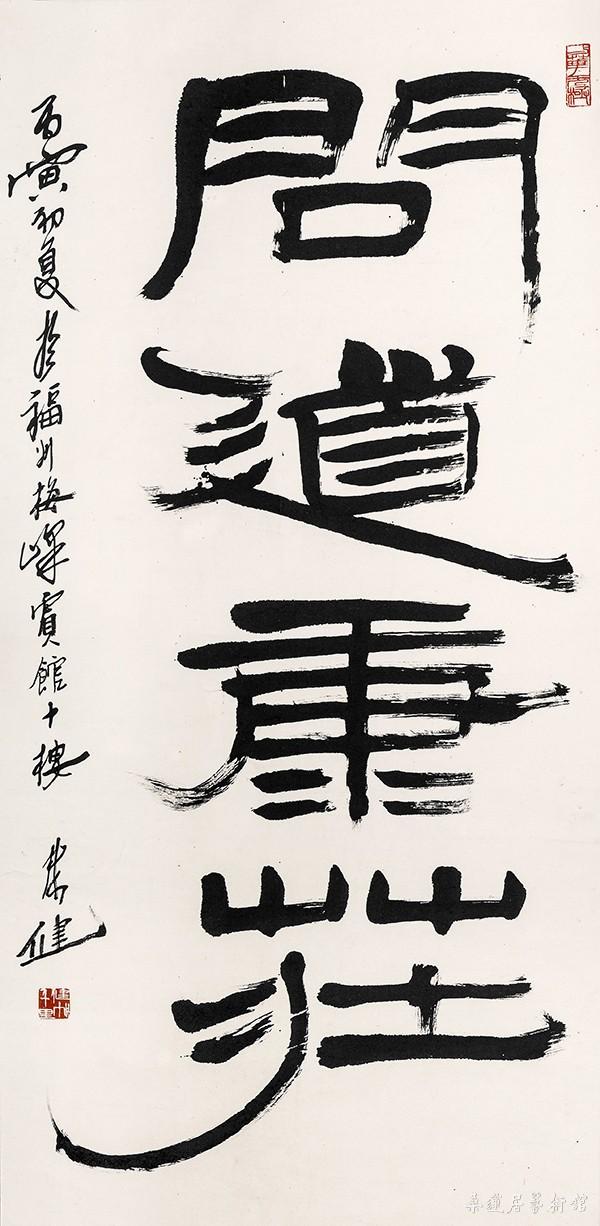 問道康莊
丙寅初夏於福州梅峰賓館十樓
健
居藝術館